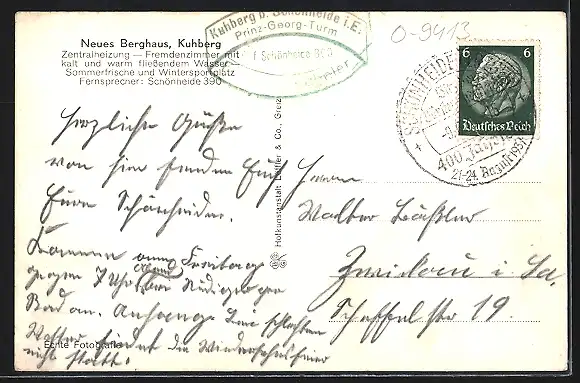 Neues Berghaus, Kuhberg
Zentralheizung — Fremdenzimmer mit
kalt und warm fließendem Wasser —
Sommerfrische und Wintersportplatz
Fernsprecher: Schönheide 390
Kuhberg b. Schönheide i.E.
Prinz-Georg-Turm
Schönheide 390
O-9413
6 6
Deutsches Reich
SCHÖNHEIDE
400 Jahr
21-24. August 1937
Herzliche Grüße
von hier senden Euch
Eure Schönheider.
Kommen Freitag
gegen 7 Uhr
Bad an. Anfangs bei schlechten
Wetter findet die Wiedersehensfeier
nicht statt.
Echte Fotografie
Hofkunstanstalt Löffler & Co., Greiz
Herrn
Walter
Zwickau i. Sa.
Scheffelstr 19.